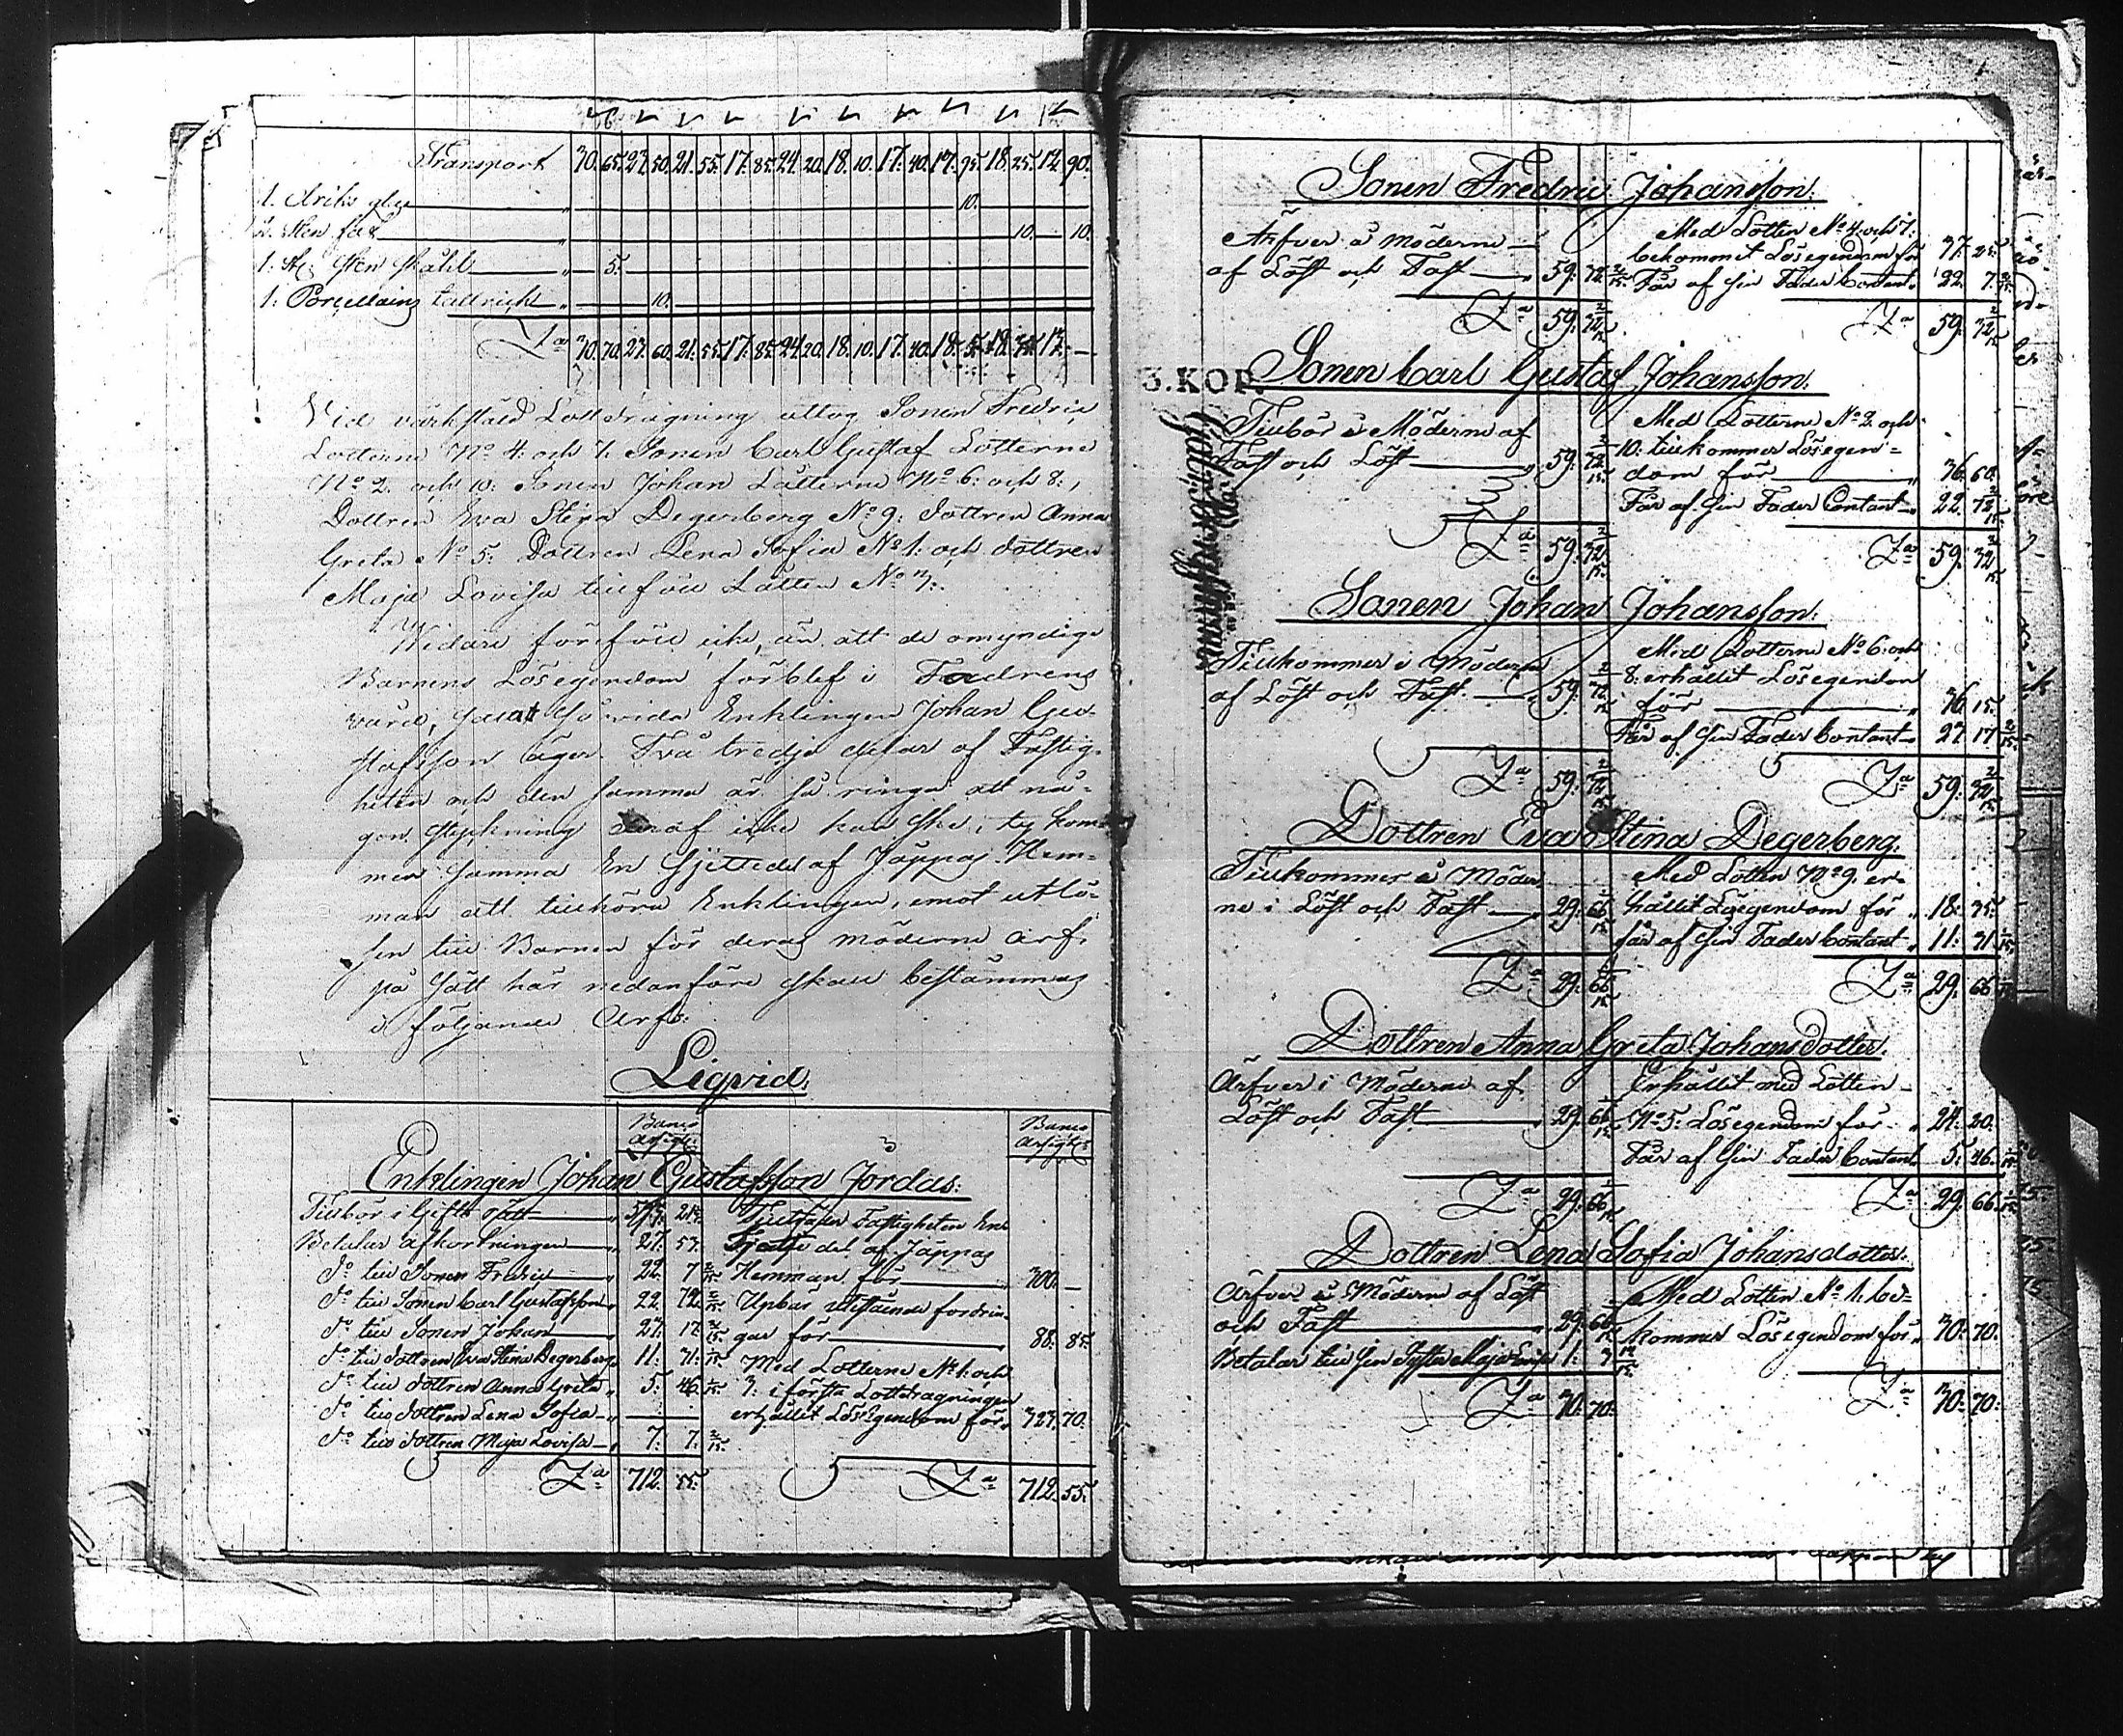 Transport 30. 65. 27. 50. 21. 55. 17. 85. 24. 20. 18. 10. 17. 40. 17. 95. 18. 25. 12. 90.
1. 10.
2. Sten fat 10. 10.
1. St. Sten skåhl 5.
1. Porcellains tallrick 10.
Sa 30. 70. 27. 60. 21. 55. 17. 85. 24. 20. 18. 10. 17. 40. 18. 5. 18. 35. 13. —
Vid värkstäld Lottdragning uttog Sonen Fredric
Lotterne No 4. och 7. Sonen Carl Gustaf Lotterne
No 2. och 10. Sonen Johan Lotterne No 6. och 8.,
Dottren Eva Stina Degerberg No 9. Dottren Anna
Greta No 5. Dottren Lena Sofia No 1. och dottren
Maja Lovisa tillföll Lotten No 3.
Widare föreföll icke, än att de omyndige
Barnens Lösegendom förblef i Fadrens
vård, samt så vida Enklingen Johan Gus-
tafsson äger Två tredje delar af Fastig-
heten och den samma är så ringa att nå-
gon styckning deraf icke kan ske, ty kom-
mer samma En Sjettedel af Jåppas Hem-
man att tillhöra Enklingen, emot utlö-
sen till Barnen för deras möderne arf,
på sätt här nedanföre skall bestämmas
i följande Arfs-
Liqvid.
Banco Assign: Banco Assign:
Enklingen Johan Gustafsson Jordas.
Tillbör i Giftorätt 21. Tillfaller Fastigheten En
Betalar afkortningen 27. 57. Sjette del af Jåppas
do till Sonen Fredric 22. 7 2/15 Hemman för 300. —
do till Sonen Carl Gustafsson 22. 72 2/15 Upbär utestående fordrin-
do till Sonen Johan 23. 17 2/15 gar för 88. 85.
do till dottren Eva Stina Degerberg 11. 31 1/15 Med Lotterne No 1. och
do till dottren Anna Greta 5. 46 1/15 3. i första Lottdragningen
do till dottren Lena Sofia — erhållit Lösegendom för 323. 70.
do till dottren Maja Lovisa 7. 7.
Sa 712. 55. Sa 712. 55.
3. KOP.
Sonen Fredric Johansson.
Ärfver i möderne Med Lotten No 4. och 7.
af Löst och Fast 59. 32 2/15 bekommit Lösegendom för 37. 25.
Får af Sin Fader Contant 22. 7 2/15
Sa 59. 32 2/15 Sa 59. 32 2/15
Sonen Carl Gustaf Johansson.
Tillbör i Möderne af Med Lotterne No 2. och
Fast och Löst 59. 32 2/15 10. tillkommer Lösegen-
dom för 36. 60.
Får af Sin Fader Contant 22. 72 2/15
Sa 59. 32 2/15 Sa 59. 32 2/15
Sonen Johan Johansson.
Tillkommer i Möderne Med Lotterne No 6. och
af Löst och Fast 59. 32 2/15 8. erhållit Lösegendom
för 36. 15.
Får af Sin Fader Contant 23. 17 2/15
Sa 59. 32 2/15 Sa 59. 32 2/15
Dottren Eva Stina Degerberg.
Tillkommer i Möder- Med Lotten No 9. er-
ne i Löst och Fast 29. 66 1/15 hållit Lösegendom för 18. 35.
får af Sin Fader Contant 11. 31 1/15
Sa 29. 66 1/15 Sa 29. 66 1/15
Dottren Anna Greta Johansdotter.
Ärfver i Möderne af Erhållit med Lotten
Löst och Fast 29. 66 1/15 No 5. Lösegendom för 24. 20.
Får af Sin Fader Contant 5. 46 1/15
Sa 29. 66 1/15 Sa 29. 66 1/15
Dottren Lena Sofia Johansdotter.
Ärfver i Möderne af Löst Med Lotten No 1. be-
och Fast 29. 66 1/15 kommer Lösegendom för 30. 70.
Betalar till Sin Syster Maja Lovisa 1. 3 14/15
Sa 30. 70. Sa 30. 70.